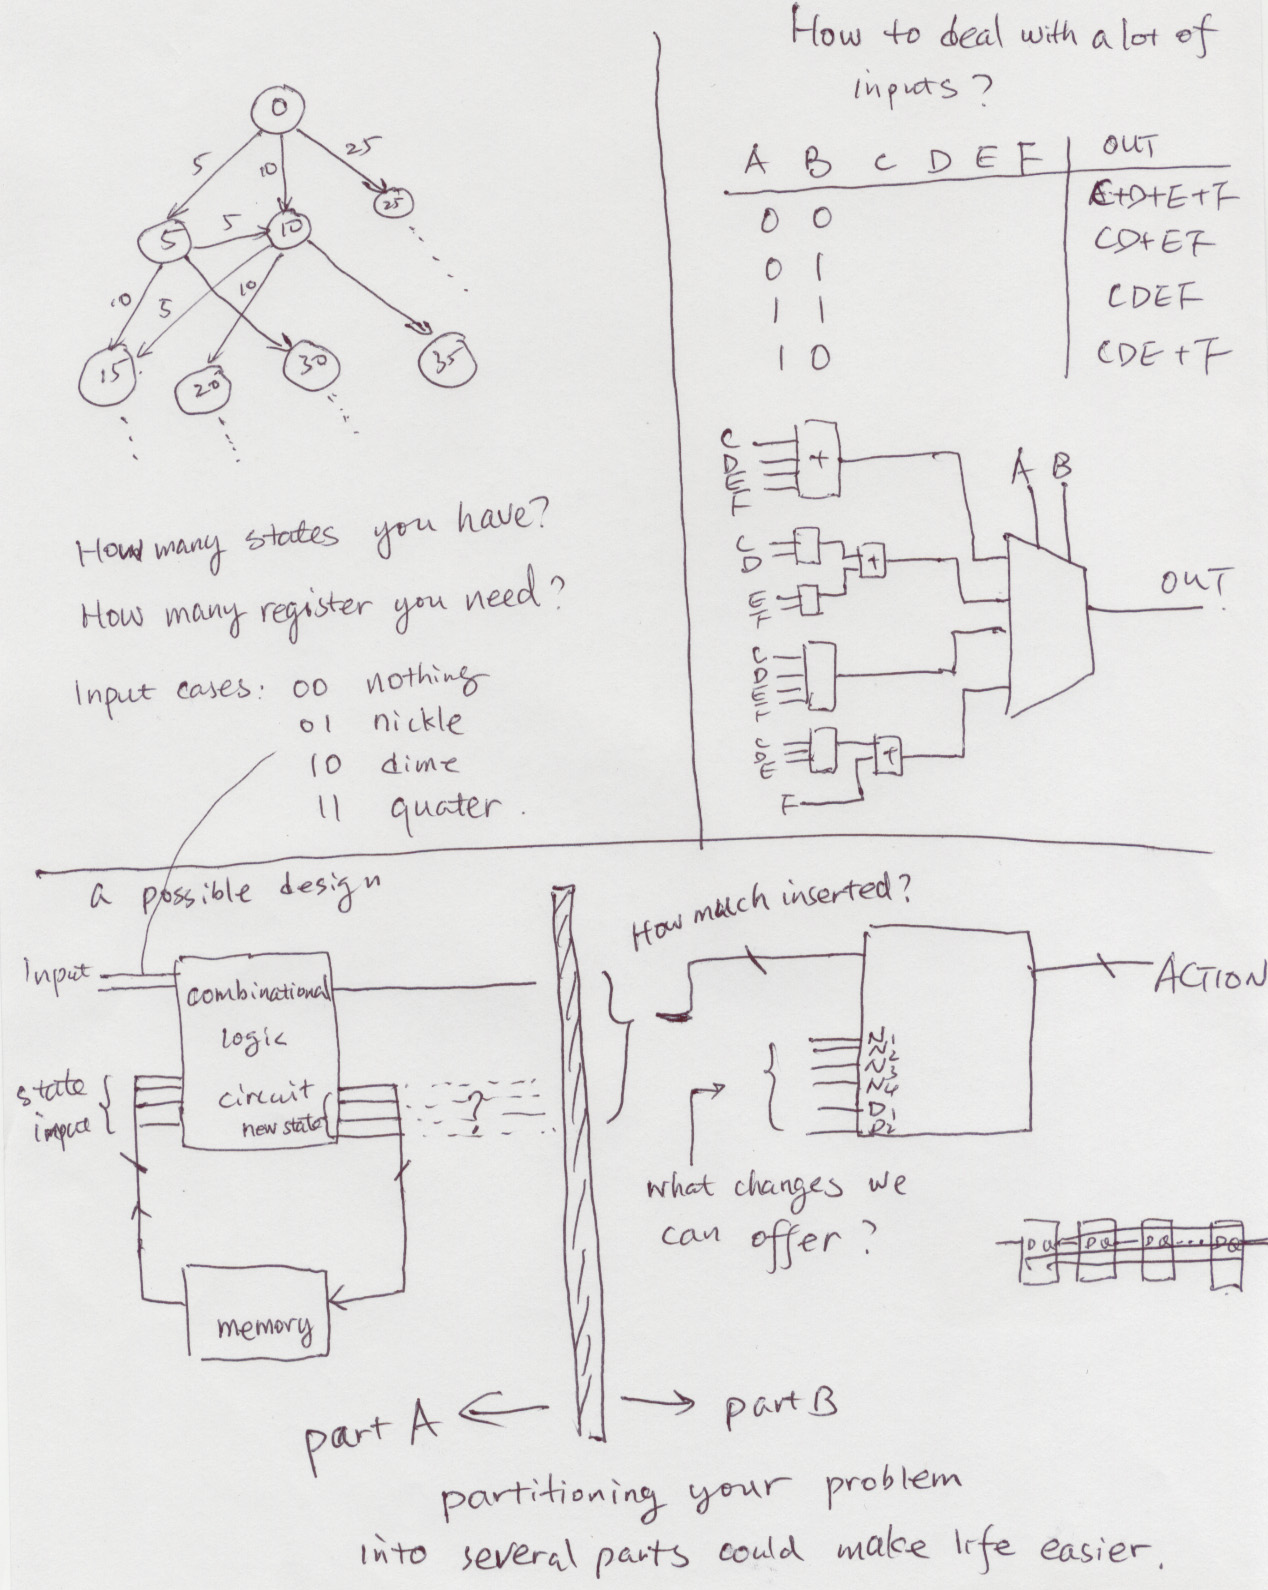 0
5
10
25
25
5
5
10
10
5
10
15
20
30
35
How many states you have?
How many register you need?
Input cases: 00 nothing
01 nickle
10 dime
11 quater.
How to deal with a lot of
inputs?
A B C D E F OUT
0 0 C+D+E+F
0 1 CD+EF
1 1 CDEF
1 0 CDE+F
C
D
E
F
+
A B
C
D
+
E
F
OUT
C
D
E
F
C
D
E
+
F
a possible design
Input
combinational
logic
circuit
new state
state
input
?
memory
How much inserted?
ACTION
N1
N2
N3
N4
D1
D2
what changes we
can offer?
DQ DQ DQ ... DQ
part A
part B
partitioning your problem
into several parts could make life easier.